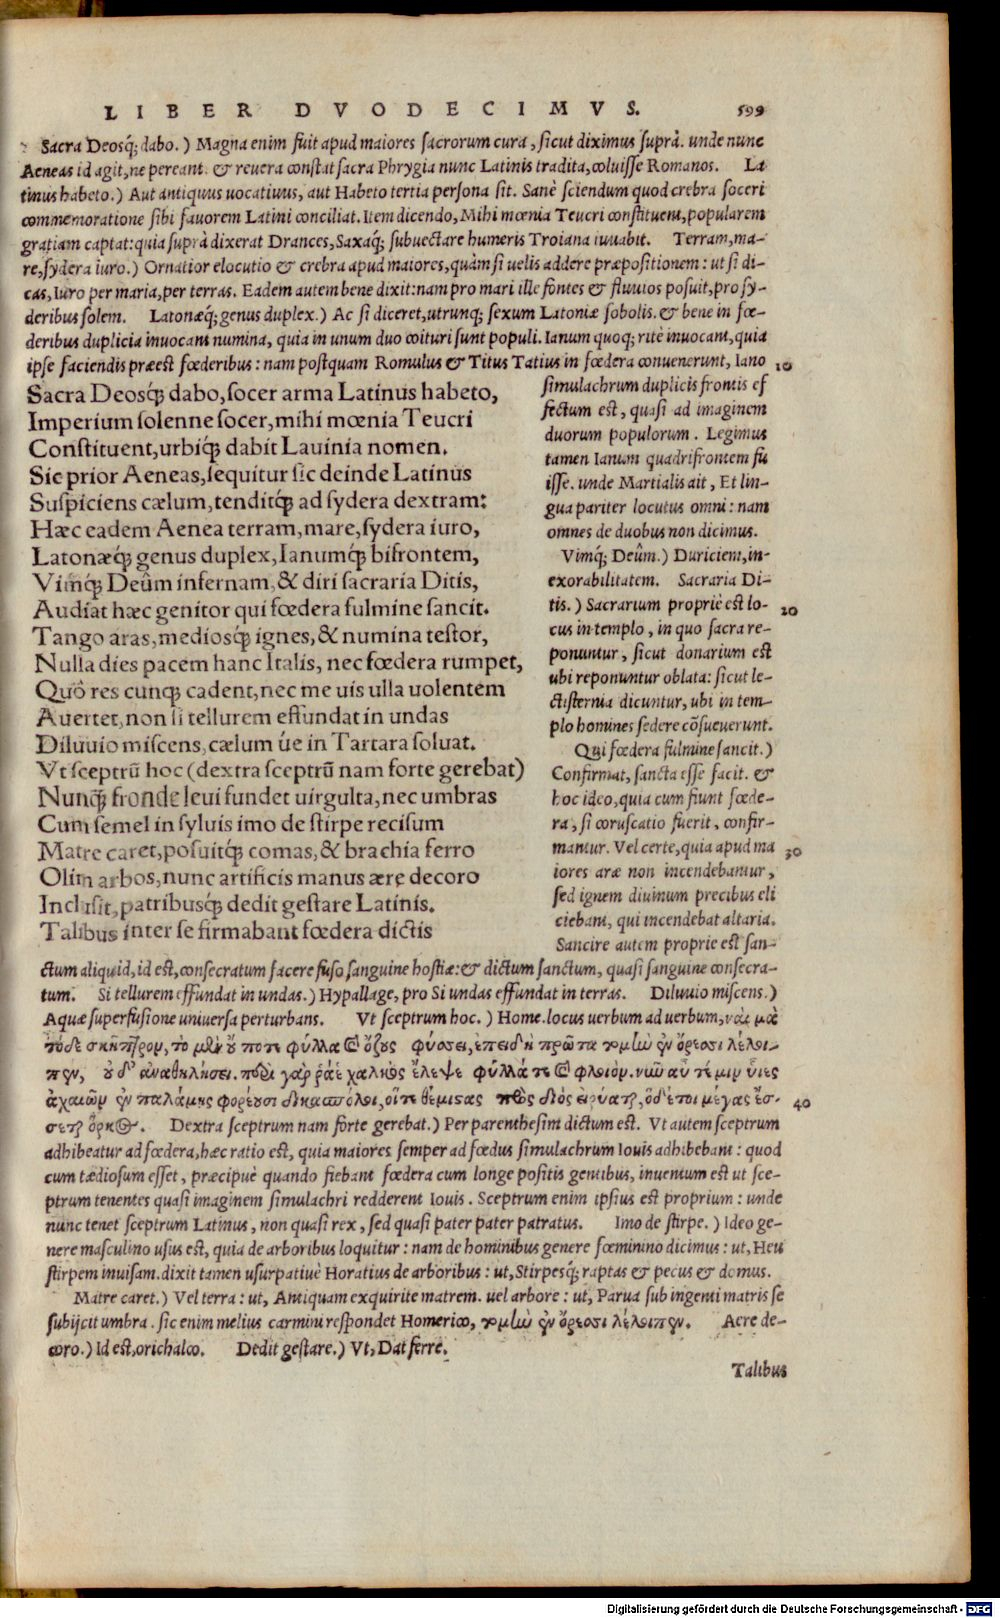 LIBER DVODECIMVS. 599
Sacra Deosq́; dabo.) Magna enim fuit apud maiores sacrorum cura, sicut diximus suprà. unde nunc
Aeneas id agit, ne pereant. & reuera constat sacra Phrygia nunc Latinis tradita, coluisse Romanos. La
tinus habeto.) Aut antiquus uocatiuus, aut Habeto tertia persona sit. Sanè sciendum quod crebra soceri
commemoratione sibi fauorem Latini conciliat. Item dicendo, Mihi mœnia Teucri constituent, popularem
gratiam captat: quia suprà dixerat Drances, Saxaq́; subuectare humeris Troiana iuuabit. Terram, ma-
re, sydera iuro.) Ornatior elocutio & crebra apud maiores, quàm si uelis addere præpositionem: ut si di-
cas, Iuro per maria, per terras. Eadem autem bene dixit: nam pro mari ille fontes & fluuios posuit, pro sy-
deribus solem. Latonæq́; genus duplex.) Ac si diceret, utrunq; sexum Latoniæ sobolis. & bene in fœ-
deribus duplicia inuocant numina, quia in unum duo coituri sunt populi. Ianum quoq; ritè inuocant, quia
ipse faciendis præest fœderibus: nam postquam Romulus & Titus Tatius in fœdera conuenerunt, Iano 10
Sacra Deosq́; dabo, socer arma Latinus habeto,
Imperium solenne socer, mihi mœnia Teucri
Constituent, urbiq́; dabit Lauinia nomen.
Sic prior Aeneas, sequitur sic deinde Latinus
Suspiciens cælum, tenditq́; ad sydera dextram:
Hæc eadem Aenea terram, mare, sydera iuro,
Latonæq́; genus duplex, Ianumq́; bifrontem,
Vimq́; Deûm infernam, & diri sacraria Ditis,
Audiat hæc genitor qui fœdera fulmine sancit.
Tango aras, mediosq́; ignes, & numina testor,
Nulla dies pacem hanc Italis, nec fœdera rumpet,
Quô res cunq; cadent, nec me uis ulla uolentem
Auertet, non si tellurem effundat in undas
Diluuio miscens, cælum úe in Tartara soluat.
Vt sceptrũ hoc (dextra sceptrũ nam forte gerebat)
Nunq̃ fronde leui fundet uirgulta, nec umbras
Cum semel in syluis imo de stirpe recisum
Matre caret, posuitq́; comas, & brachia ferro
Olim arbos, nunc artificis manus ære decoro
Inclusit, patribusq́; dedit gestare Latinis.
Talibus inter se firmabant fœdera dictis
simulachrum duplicis frontis ef
fectum est, quasi ad imaginem
duorum populorum. Legimus
tamen Ianum quadrifrontem fu
isse. unde Martialis ait, Et lin-
gua pariter locutus omni: nam
omnes de duobus non dicimus.
Vimq́; Deûm.) Duriciem, in-
exorabilitatem. Sacraria Di-
tis.) Sacrarium propriè est lo- 20
cus in templo, in quo sacra re-
ponuntur, sicut donarium est
ubi reponuntur oblata: sicut le-
ctisternia dicuntur, ubi in tem-
plo homines sedere cõsueuerunt.
Qui fœdera fulmine sancit.)
Confirmat, sancta esse facit. &
hoc ideo, quia cum fiunt fœde-
ra, si coruscatio fuerit, confir-
mantur. Vel certe, quia apud ma 30
iores aræ non incendebantur,
sed ignem diuinum precibus eli
ciebant, qui incendebat altaria.
Sancire autem proprie est san-
ctum aliquid, id est, consecratum facere fuso sanguine hostiæ: & dictum sanctum, quasi sanguine consecra-
tum. Si tellurem effundat in undas.) Hypallage, pro Si undas effundat in terras. Diluuio miscens.)
Aquæ superfusione uniuersa perturbans. Vt sceptrum hoc.) Home. locus uerbum ad uerbum, ναὶ μὰ
τόδε σκῆπτρον, τὸ μὲν ὔ ποτε φύλλα καὶ ὄζους φύσει, ἐπειδὴ πρῶτα τομὴν ἐν ὄρεσσι λέλοι-
πεν, ὐδ' ἀναθηλήσει. περὶ γάρ ῥά ἑ χαλκὸς ἔλεψε φύλλα τε καὶ φλοιόν. νῦν αὖ τέ μιν υἷες
ἀχαιῶν ἐν παλάμῃς φορέυσι δικασπόλοι, οἵτε θέμιστας πρὸς διὸς εἰρύαται, ὅδέ τοι μέγας ἔσ- 40
σεται ὅρκος. Dextra sceptrum nam forte gerebat.) Per parenthesim dictum est. Vt autem sceptrum
adhibeatur ad fœdera, hæc ratio est, quia maiores semper ad fœdus simulachrum Iouis adhibebant: quod
cum tædiosum esset, præcipuè quando fiebant fœdera cum longe positis gentibus, inuentum est ut sce-
ptrum tenentes quasi imaginem simulachri redderent Iouis. Sceptrum enim ipsius est proprium: unde
nunc tenet sceptrum Latinus, non quasi rex, sed quasi pater pater patratus. Imo de stirpe.) Ideo ge-
nere masculino usus est, quia de arboribus loquitur: nam de hominibus genere fœminino dicimus: ut, Heu
stirpem inuisam. dixit tamen usurpatiuè Horatius de arboribus: ut, Stirpesq́; raptas & pecus & domus.
Matre caret.) Vel terra: ut, Antiquam exquirite matrem. uel arbore: ut, Parua sub ingenti matris se
subijcit umbra. sic enim melius carmini respondet Homerico, τομὴν ἐν ὄρεσσι λέλοιπεν. Aere de-
coro.) Id est, orichalco. Dedit gestare.) Vt, Dat ferre.
Talibus
Digitalisierung gefördert durch die Deutsche Forschungsgemeinschaft - DFG